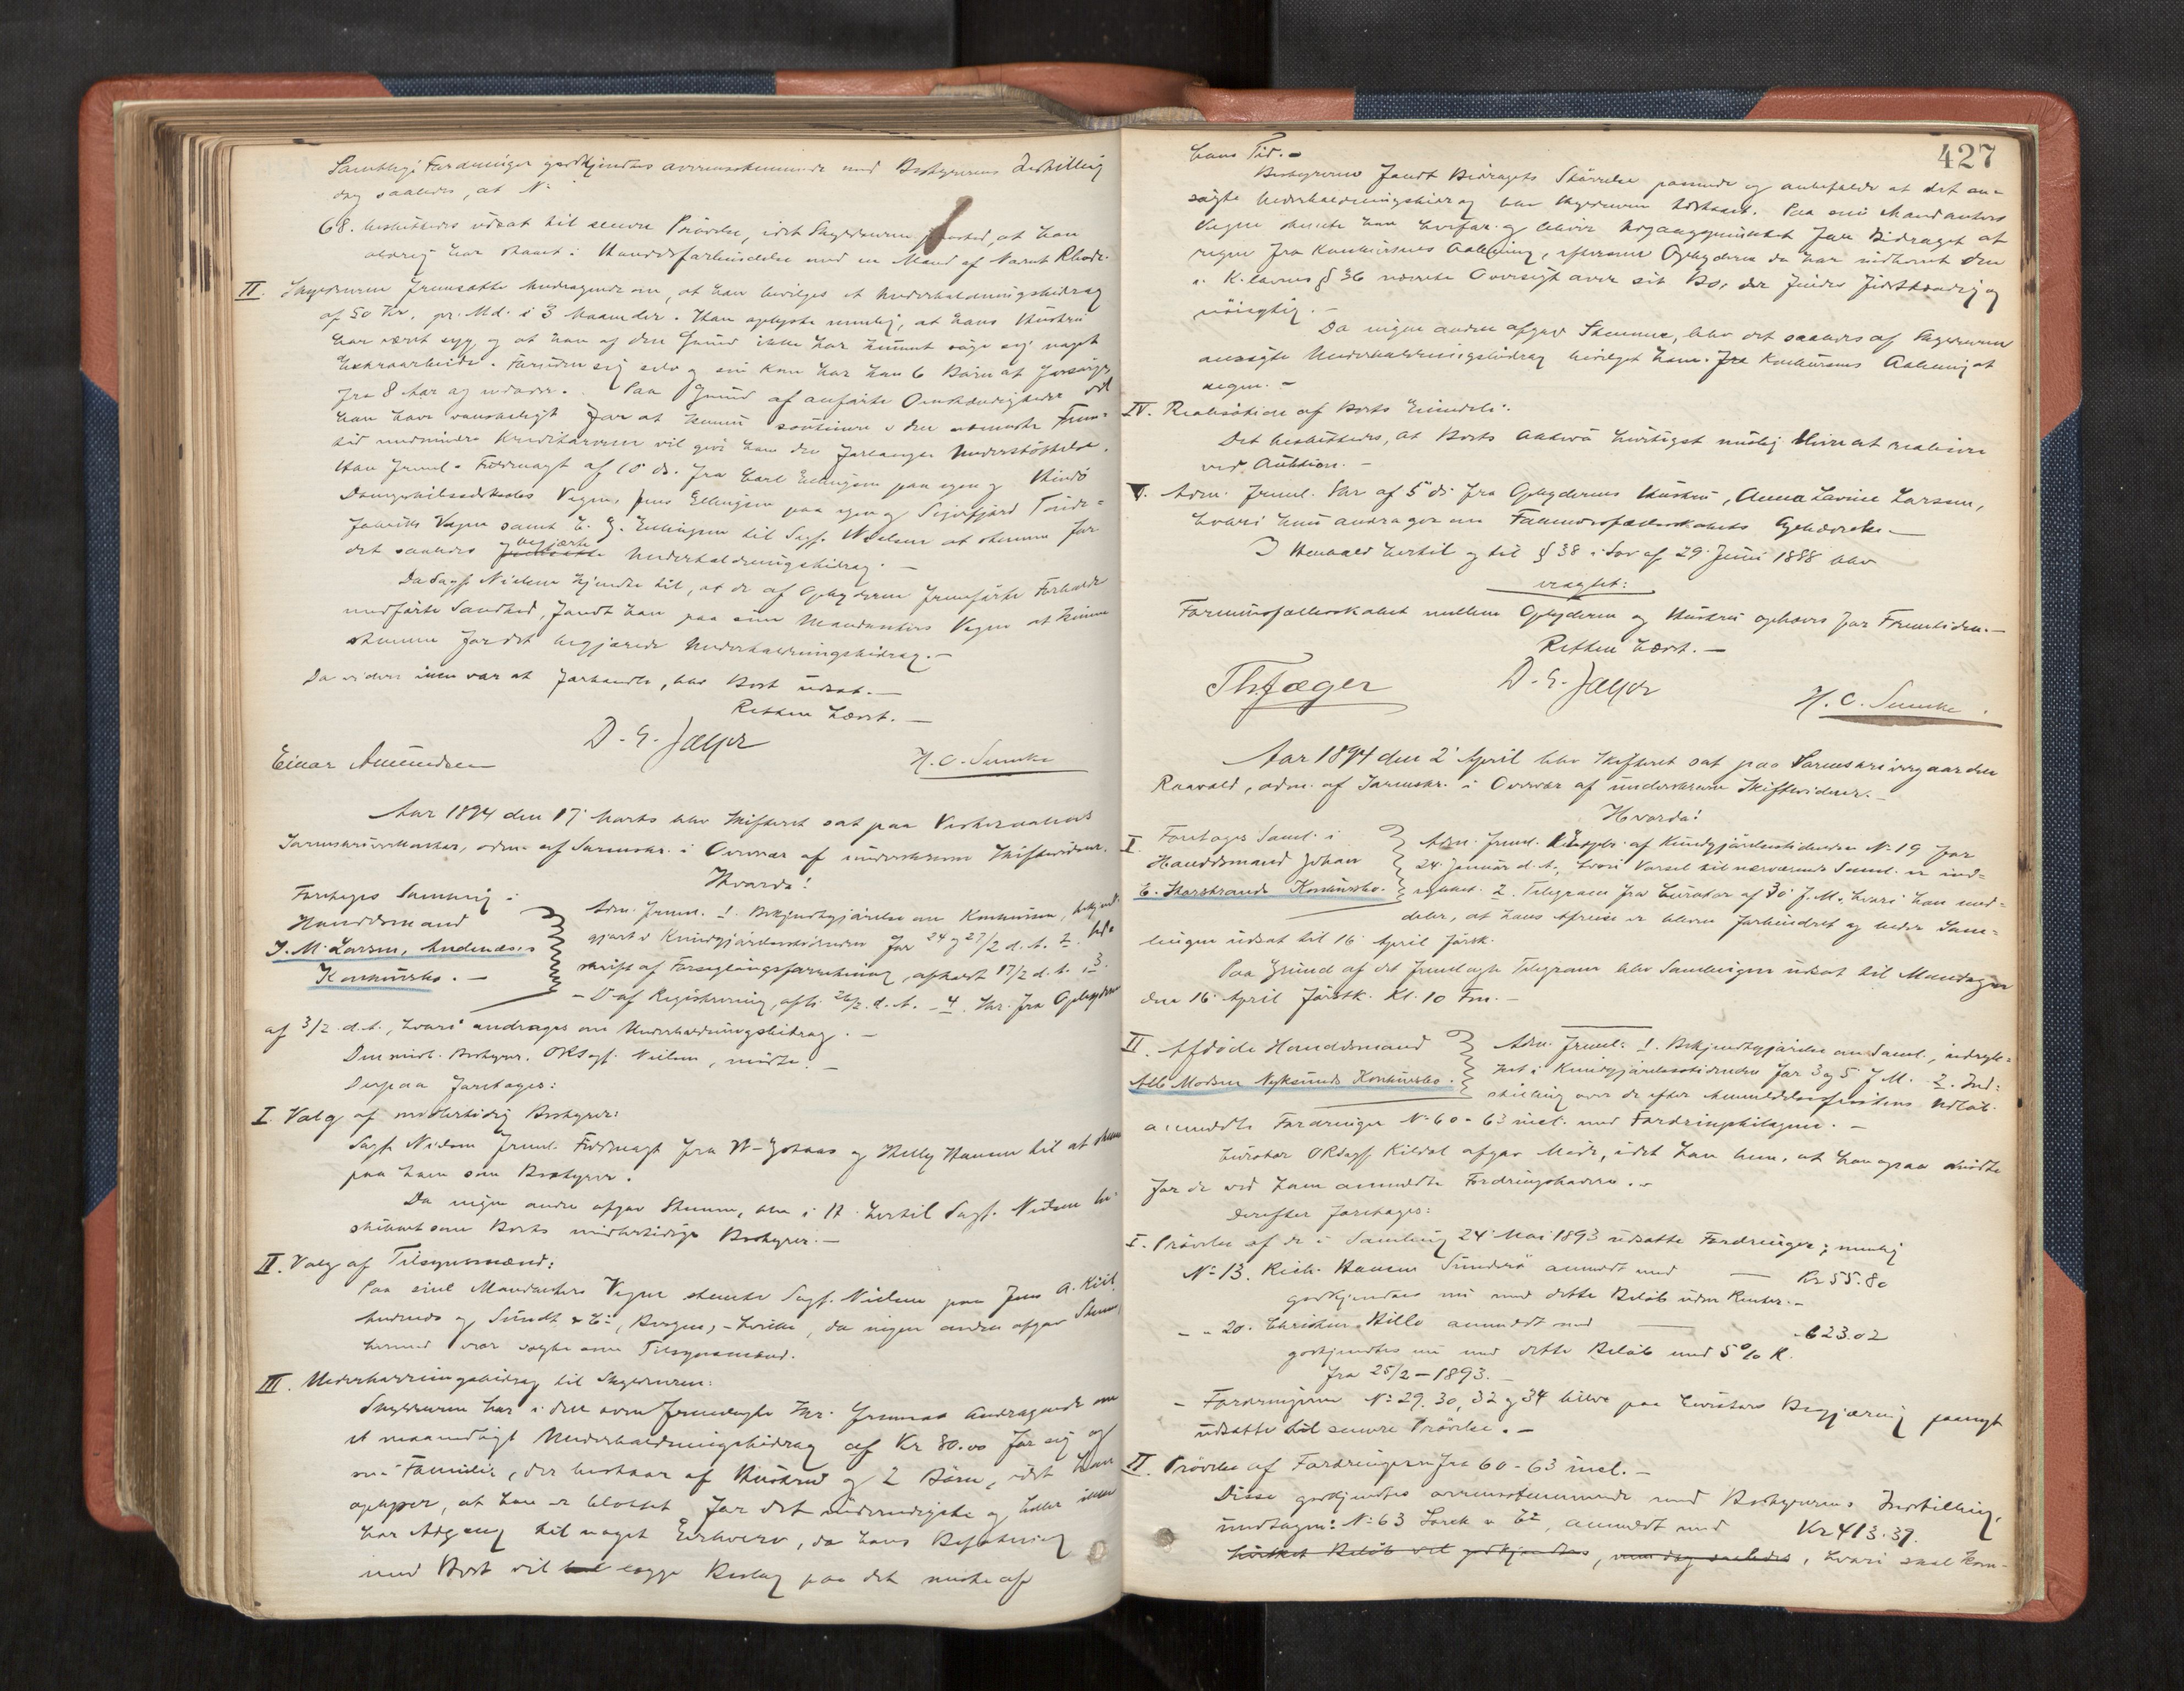 Samtlige Fordringer godkjendtes overensstemmende med Bestyrerens Indstilling
dog saaledes, at No
68. besluttedes udsat til senere Prøvelse, idet Skyldneren paastod, at han
aldrig har staaet i Handelsforbindelse med en Mand af Navnet Rhode.
II. Skyldneren fremsatte Andragende om, at han bevilges et Underholdningsbidrag
af 50 Kr. pr. Md. i 3 Maaneder. Han oplyste nemlig, at hans Hustru
har været syg og at han af den Grund ikke har kunnet søge sig noget
Extraarbeide. Foruden sig selv og sin Kone har han 6 Børn at forsørge
fra 8 Aar og nedover. Paa Grund af anførte Omstændigheder vil
han have vanskeligt for at kunne existere i den nærmeste Frem-
tid medmindre Kreditorerne vil give ham den forlangte Understøttelse.
Han freml. Fuldmagt af 15 ds. fra Carl Ellingsen paa egne og Hindø
Dampskibsselskabs Vegne, Jens Ellingsen paa egne og Sigerfjord Tønde-
fabriks Vegne samt E. G. Ellingsen til Sagf. Nielsen at stemme for
det saaledes begjærte Underholdningsbidrag. —
Da Sagf. Nielsen kjendte til, at de af Opbyderen fremførte Forholde
medførte Sandhed, fandt han paa sine Mandanters Vegne at kunne
stemme for det begjærede Underholdningsbidrag. —
Da videre intet var at forhandle, blev Boet udsat. —
Retten hævet. —
Einar Amundsen
D. G. Jæger
H. C. Simske
Aar 1894 den 17 Marts blev Skifteret sat paa Vesteraalens
Sorenskriverkontor, adm. af Sorenskr. i Overvær af underskrevne Skiftevidner.
Hvorda!
Foretoges Samling i
Handelsmand
J. M. Larsen, Andenæs's
Konkursbo. —
Adm. freml. 1. Bekjendtgjørelse om Konkursen, bekjendt-
gjort i Kundgjørelsestidenden for 24 og 27/2 d. A. 2. Ud-
skrift af Forseglingsforretning, afholdt 17/2 d. A., 3.
— D af Registrering, afh. 26/2 d. A. — 4. Skr. fra Opbyderen
af 3/2 d. A., hvori andrages om Underholdningsbidrag. —
Den midl. Bestyrer, ORSagf. Nielsen, mødte. —
Derpaa foretoges:
I. Valg af midlertidig Bestyrer:
Sagf. Nielsen freml. Fuldmagt fra W. Johnas og Thelly Hansen til at stemme
paa ham som Bestyrer.
Da ingen andre afgav Stemme, blev i H. hertil Sagf. Nielsen be-
skikket som Boets midlertidige Bestyrer. —
II. Valg af Tilsynsmænd:
Paa sine Mandanters Vegne stemte Sagf. Nielsen paa Jens A. Kiil,
Andenæs og Sundt & Co, Bergen, — hvilke, da ingen andre afgav Stemme,
hermed var valgte som Tilsynsmænd.
III. Underholdningsbidrag til Skyldneren:
Skyldneren har i den ovenfremlagte Skr. fremsat Andragende om
et maanedligt Underholdningsbidrag af Kr 80.00 for sig og
sin Familie, der bestaar af Hustru og 2 Børn, idet han
oplyser, at han er blottet for det nødvendigste og heller ikke
har Adgang til noget Erhverv, da hans Befatning
med Boet vil lægge Beslag paa det meste af
427
hans Tid. —
Bestyreren fandt Bidragets Størrelse passende og anbefalede at det an-
søgte Underholdningsbidrag blev Skyldneren tilstaaet. Paa sine Mandanters
Vegne stemte han herfor og bliver Udgangspunktet for Bidraget at
regne fra Konkursens Aabning, eftersom Opbyderen da har indkomet den
i K.lovens § 36 nævnte Oversigt over sit Bo, der findes fyldestgjørende og
nøiagtig. —
Da ingen anden afgav Stemme, blev det saaledes af Skyldneren
ansøgte Underholdningsbidrag bevilget ham. Fra Konkursens Aabning at
regne. —
IV. Realisation af Boets Eiendele:
Det besluttedes, at Boets Aktiva hurtigst mulig bliver at realisere
ved Auktion. —
V. Adm. freml. Skr af 5 ds fra Opbyderens Hustru, Anna Lavine Larsen,
hvori hun andrager om Formuesfællesskabets Ophævelse. —
I Henhold hertil og til § 38 i Lov af 29 Juni 1888 blev
eragtet:
Formuesfællesskabet mellem Opbyderen og Hustru ophæves for Fremtiden. —
Retten hævet. —
Th. Jæger
D. G. Jæger
H. C. Simske.
Aar 1894 den 2 April blev Skifteret sat paa Sorenskrivergaarden
Raavold, adm. af Sorenskr. i Overvær af underskrevne Skiftevidner. —
Hvorda!
I. Foretoges Saml. i
Handelsmand Johan
E. Skarstrands Konkursbo.
Adm. freml. 1. Expl. af Kundgjørelsestidenden No 19 for
24 Januar d. A., hvori Varsel til nærværende Saml. er ind-
rykket. 2. Telegram fra Curator af 30 f. M., hvori han med-
deler, at hans Afreise er bleven forhindret og beder Sam-
lingen udsat til 16 April førstk.
Paa Grund af det fremlagte Telegram blev Samlingen udsat til Mandagen
den 16 April førstk. Kl. 10 Fm. —
II. Afdøde Handelsmand
Alb. Madsen Nyksunds Konkursbo.
Adm. freml. 1. Bekjendtgjørelse om Saml., indryk-
ket i Kundgjørelsestidenden for 3 og 5 f. M. 2. Ind-
stilling over de efter Anmeldelsesfristens Udløb
anmeldte Fordringer No 60 - 63 incl. med Fordringsbilagene. —
Curator ORSagf. Kildal afgav Møde, idet han bem. at han ogsaa mødte
for de ved ham anmeldte Fordringshavere. —
Derefter foretoges:
I. Prøvelse af de i Samling 24 Mai 1893 udsatte Fordringer; nemlig
No 13. Rich. Hansen Sunderø anmeldt med — Kr 55.80
godkjendtes nu med dette Beløb uden Renter. —
— " 20. Christian Hillo anmeldt med — - 623.02
godkjendtes nu med dette Beløb med 5 % R.
fra 25/2 - 1893. —
— Fordringerne No 29, 30, 32 og 34 bleve paa Curators Begjæring paanyt
udsatte til senere Prøvelse. —
II. Prøvelse af Fordringerne fra 60 - 63 incl. —
Disse godkjendtes overensstemmende med Bestyrerens Indstilling,
undtagen: No 63 Lorck & Co, anmeldt med Kr 413.39.
hvilket Beløb vel godkjendtes, men dog saaledes, hvori skal kom-